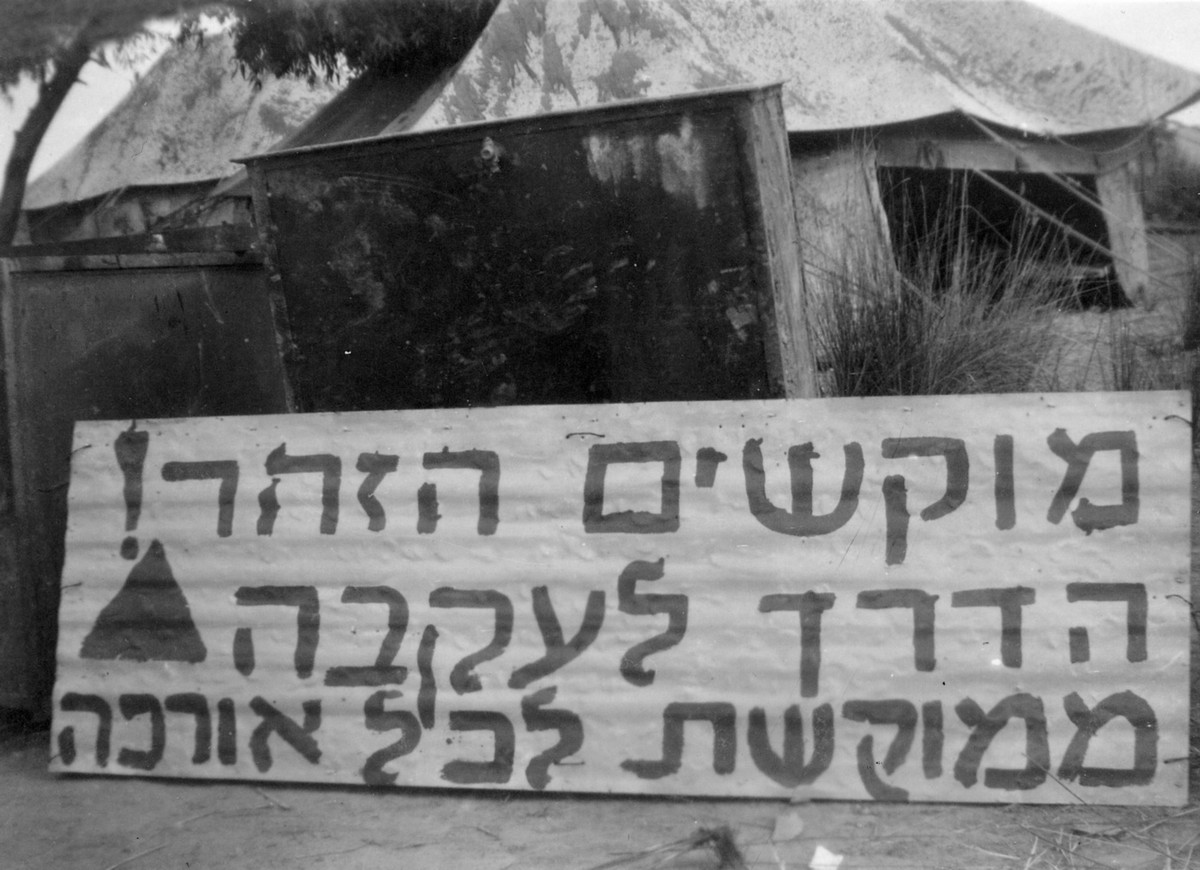 מוקשים הזהר!
הדרך לעקבה
ממוקשת לכל אורכה